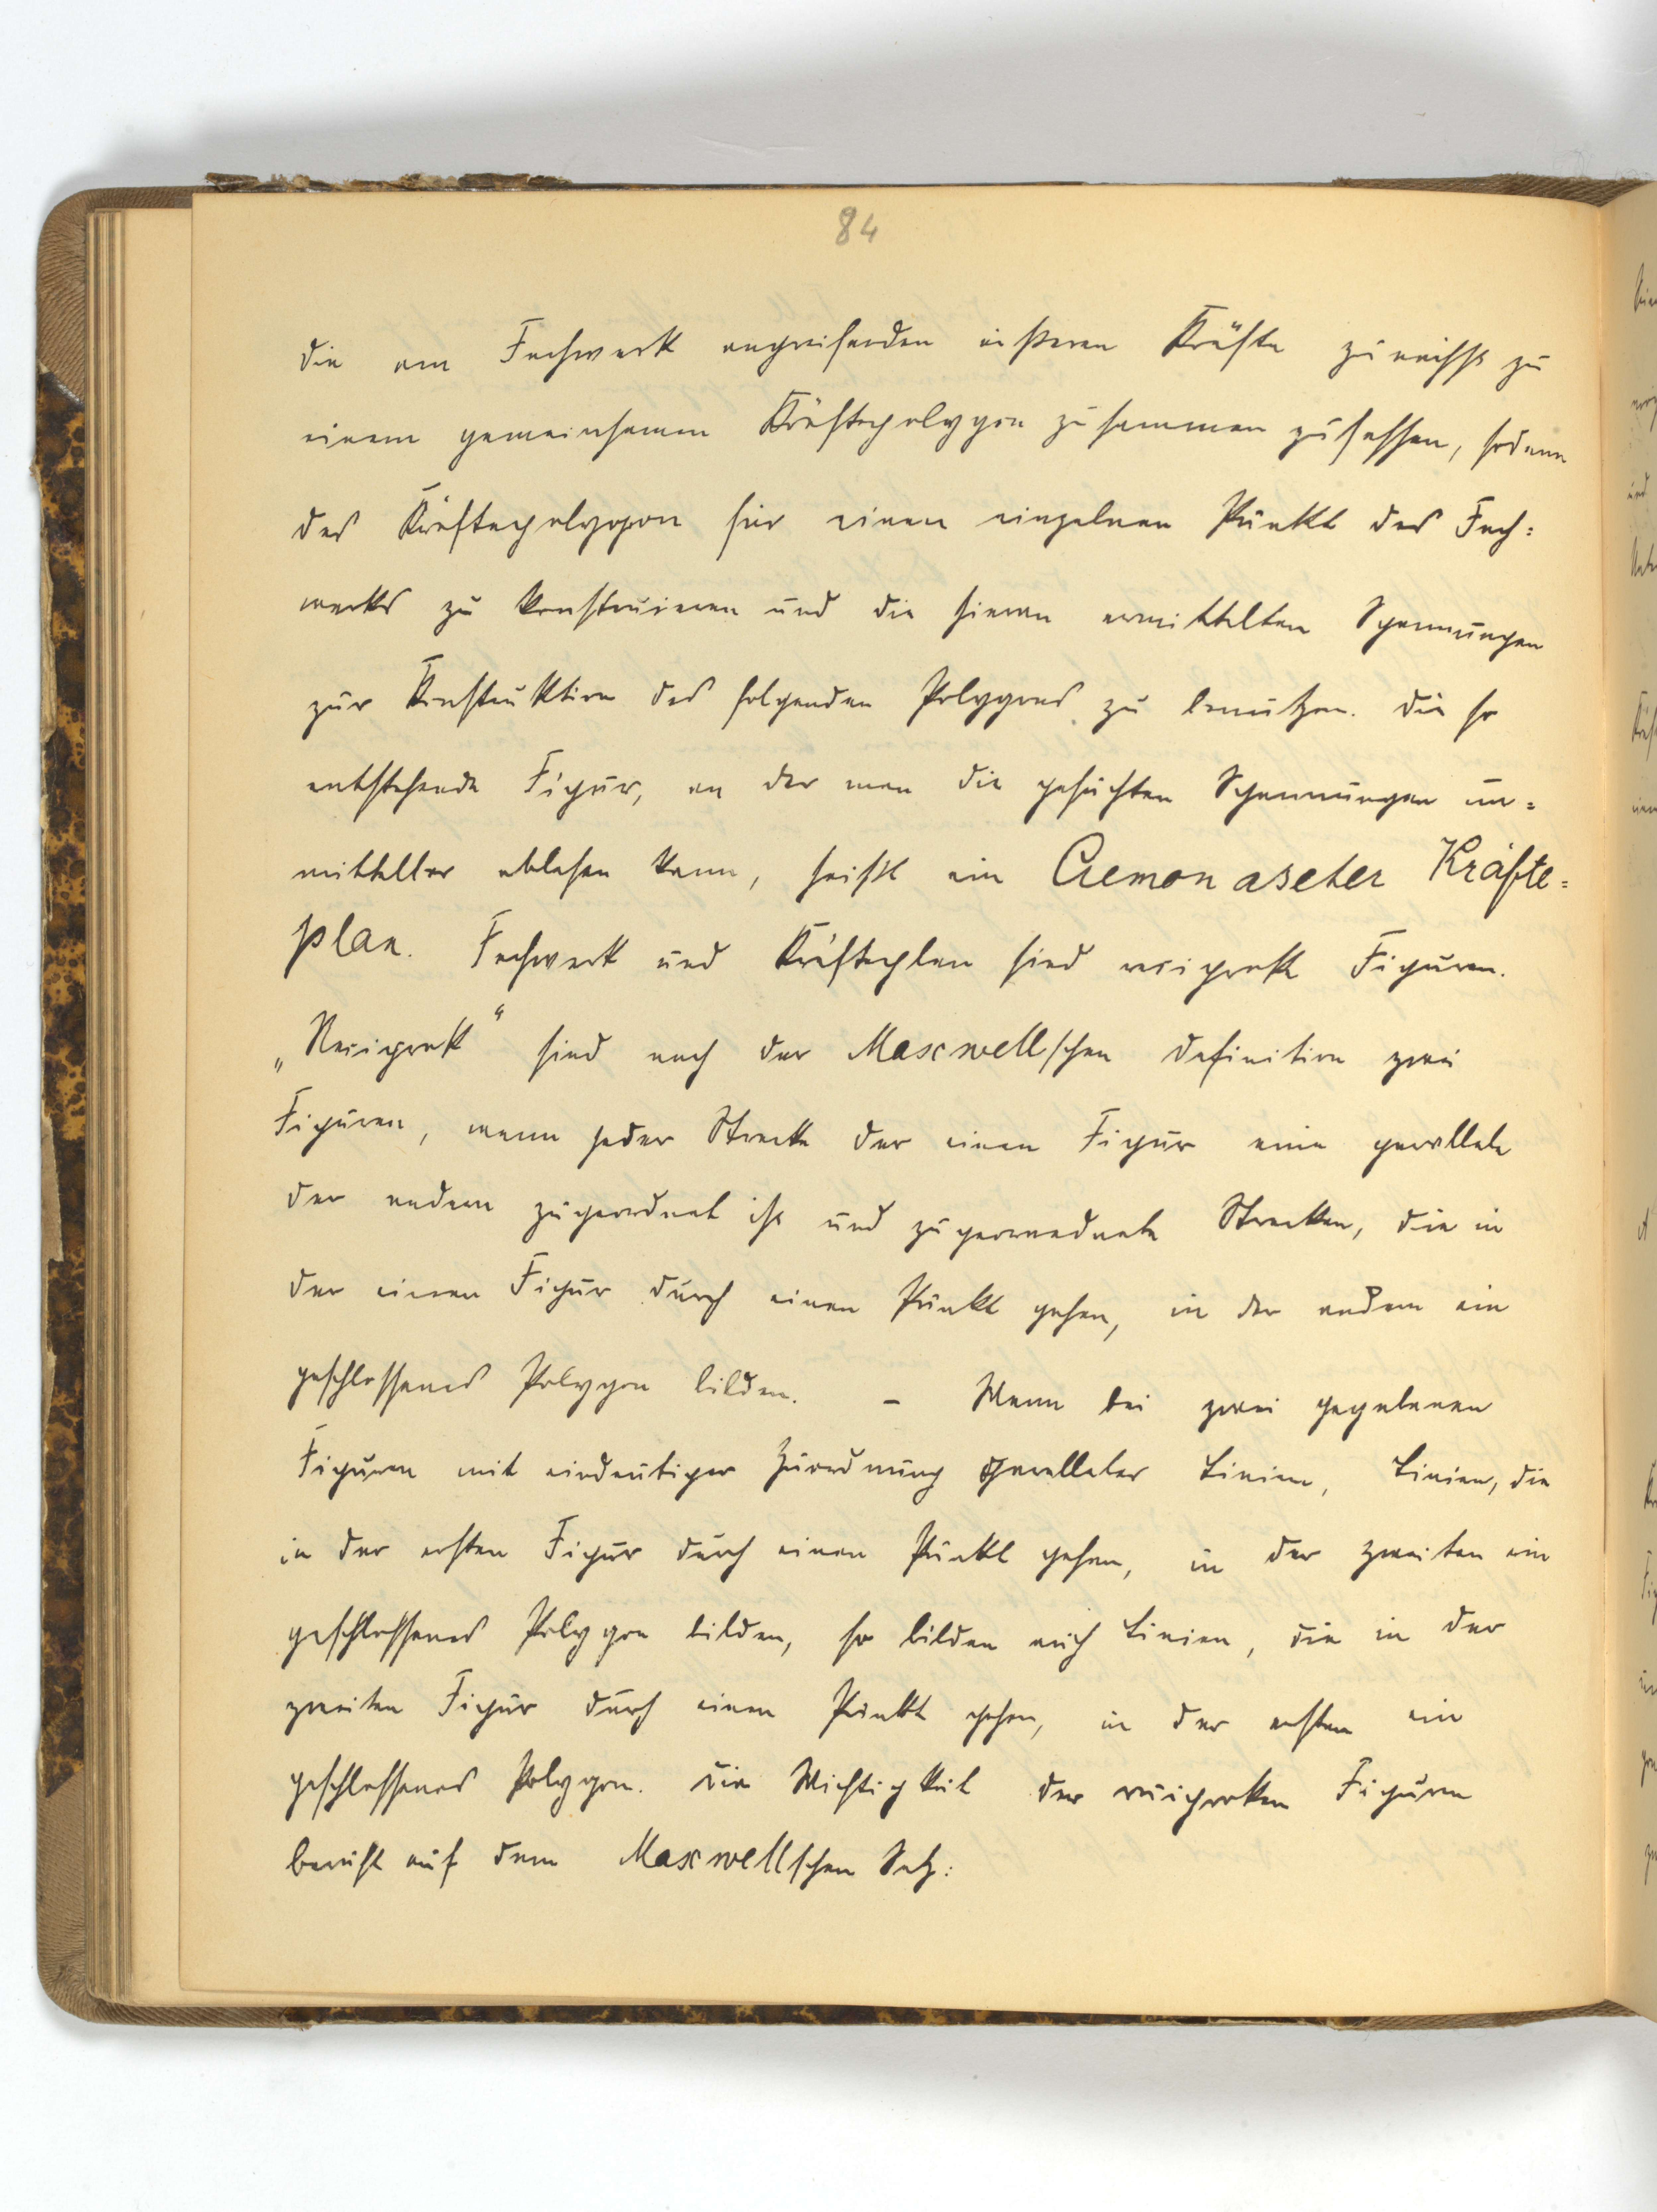 84
die am Fachwerk angreifenden äußeren Kräfte zunächst zu
einem gemeinsamen Kräftepolygon zusammen zufassen, sodann
das Kräftepolygon für einen einzelnen Punkt des Fach=
werks zu konstruieren und die hieran ermittelten Spannungen
zur Konstruktion des folgenden Polygons zu benutzen. Die so
entstehende Figur, an der man die gesuchten Spannungen un=
mittelbar ablesen kann, heißt ein Cremonascher Kräfte=
plan. Fachwerk und Kräfteplan sind reciproke Figuren.
„Reciprok“ sind nach der Maxwellschen Definition zwei
Figuren, wenn jeder Strecke der einen Figur eine parallele
der andern zugeordnet ist und zugeordnete Strecken, die in
der einen Figur durch einen Punkt gehen, in der andern ein
geschlossenes Polygon bilden. – Wenn bei zwei gegebenen
Figuren mit eindeutiger Zuordnung paralleler Linien, Linien, die
in der ersten Figur durch einen Punkt gehen, in der zweiten ein
geschlossenes Polygon bilden, so bilden auch Linien, die in der
zweiten Figur durch einen Punkt gehen, in der ersten ein
geschlossenes Polygon. Die Wichtigkeit der reciproken Figuren
beruht auf dem Maxwellschen Satz: